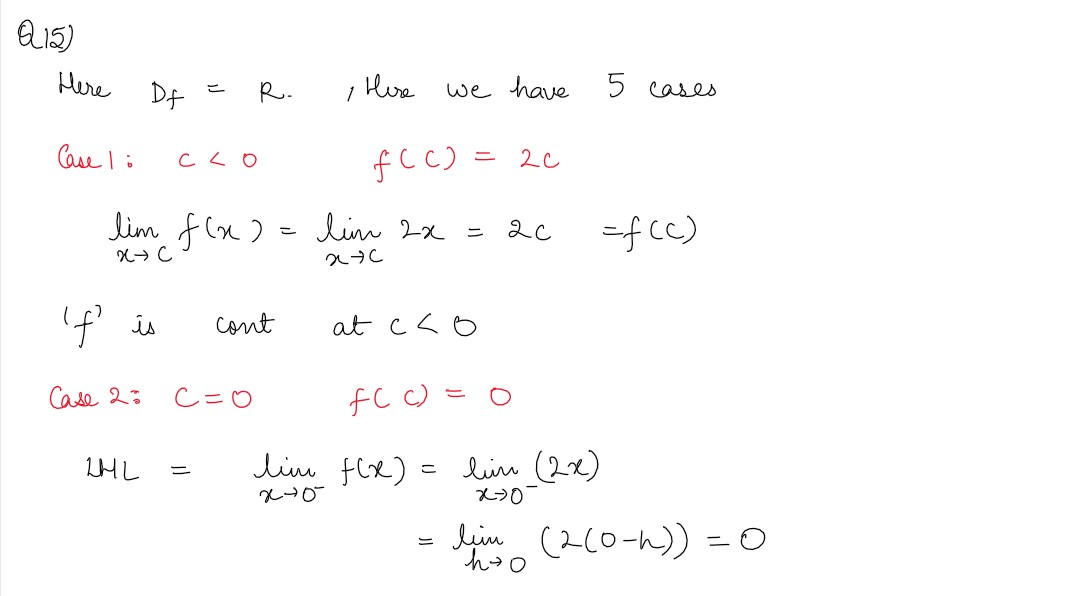 Q15)
Here Df = R. , Here we have 5 cases
Case 1: c < 0 f(c) = 2c
lim x→c f(x) = lim x→c 2x = 2c = f(c)
'f' is cont at c < 0
Case 2: c = 0 f(c) = 0
LHL = lim x→0⁻ f(x) = lim x→0⁻ (2x)
= lim h→0 (2(0-h)) = 0